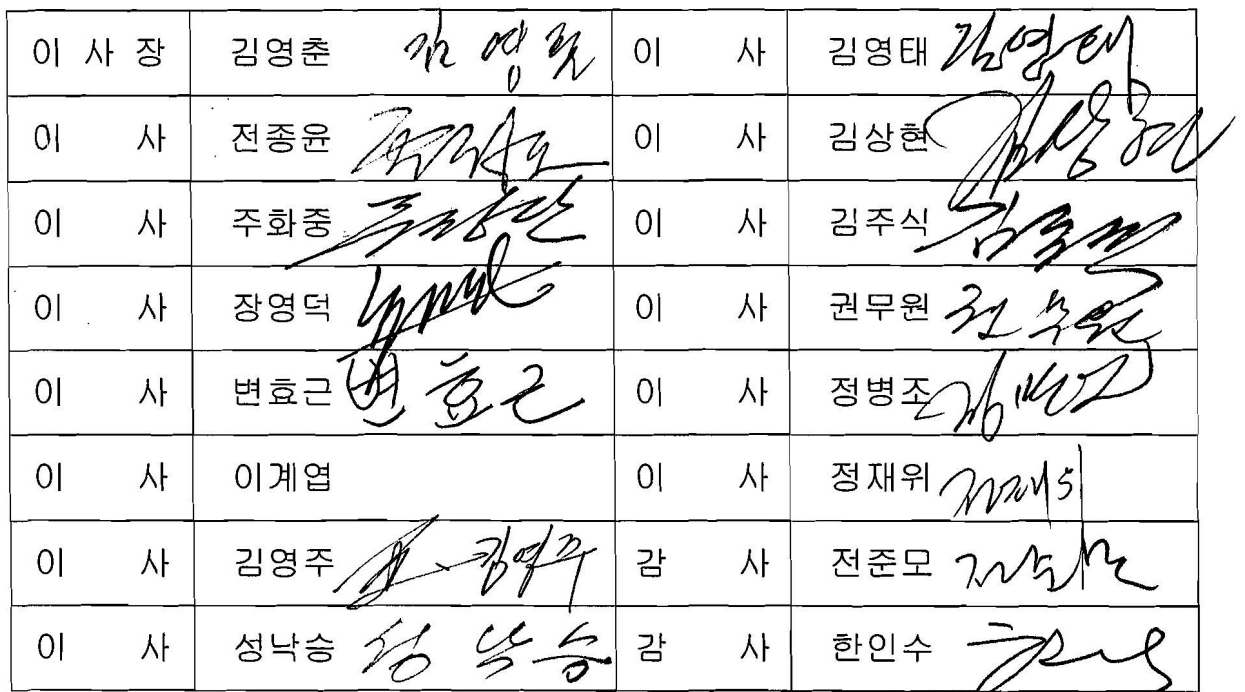 이 사 장 김영춘 김영춘 이 사 김영태 김영태
이 사 전종윤 이 사 김상현 김상현
이 사 주화중 이 사 김주식 김주식
이 사 장영덕 이 사 권무원 권무원
이 사 변효근 변효근 이 사 정병조
이 사 이계엽 이 사 정재위 정재위
이 사 김영주 김영주 감 사 전준모
이 사 성낙승 성낙승 감 사 한인수